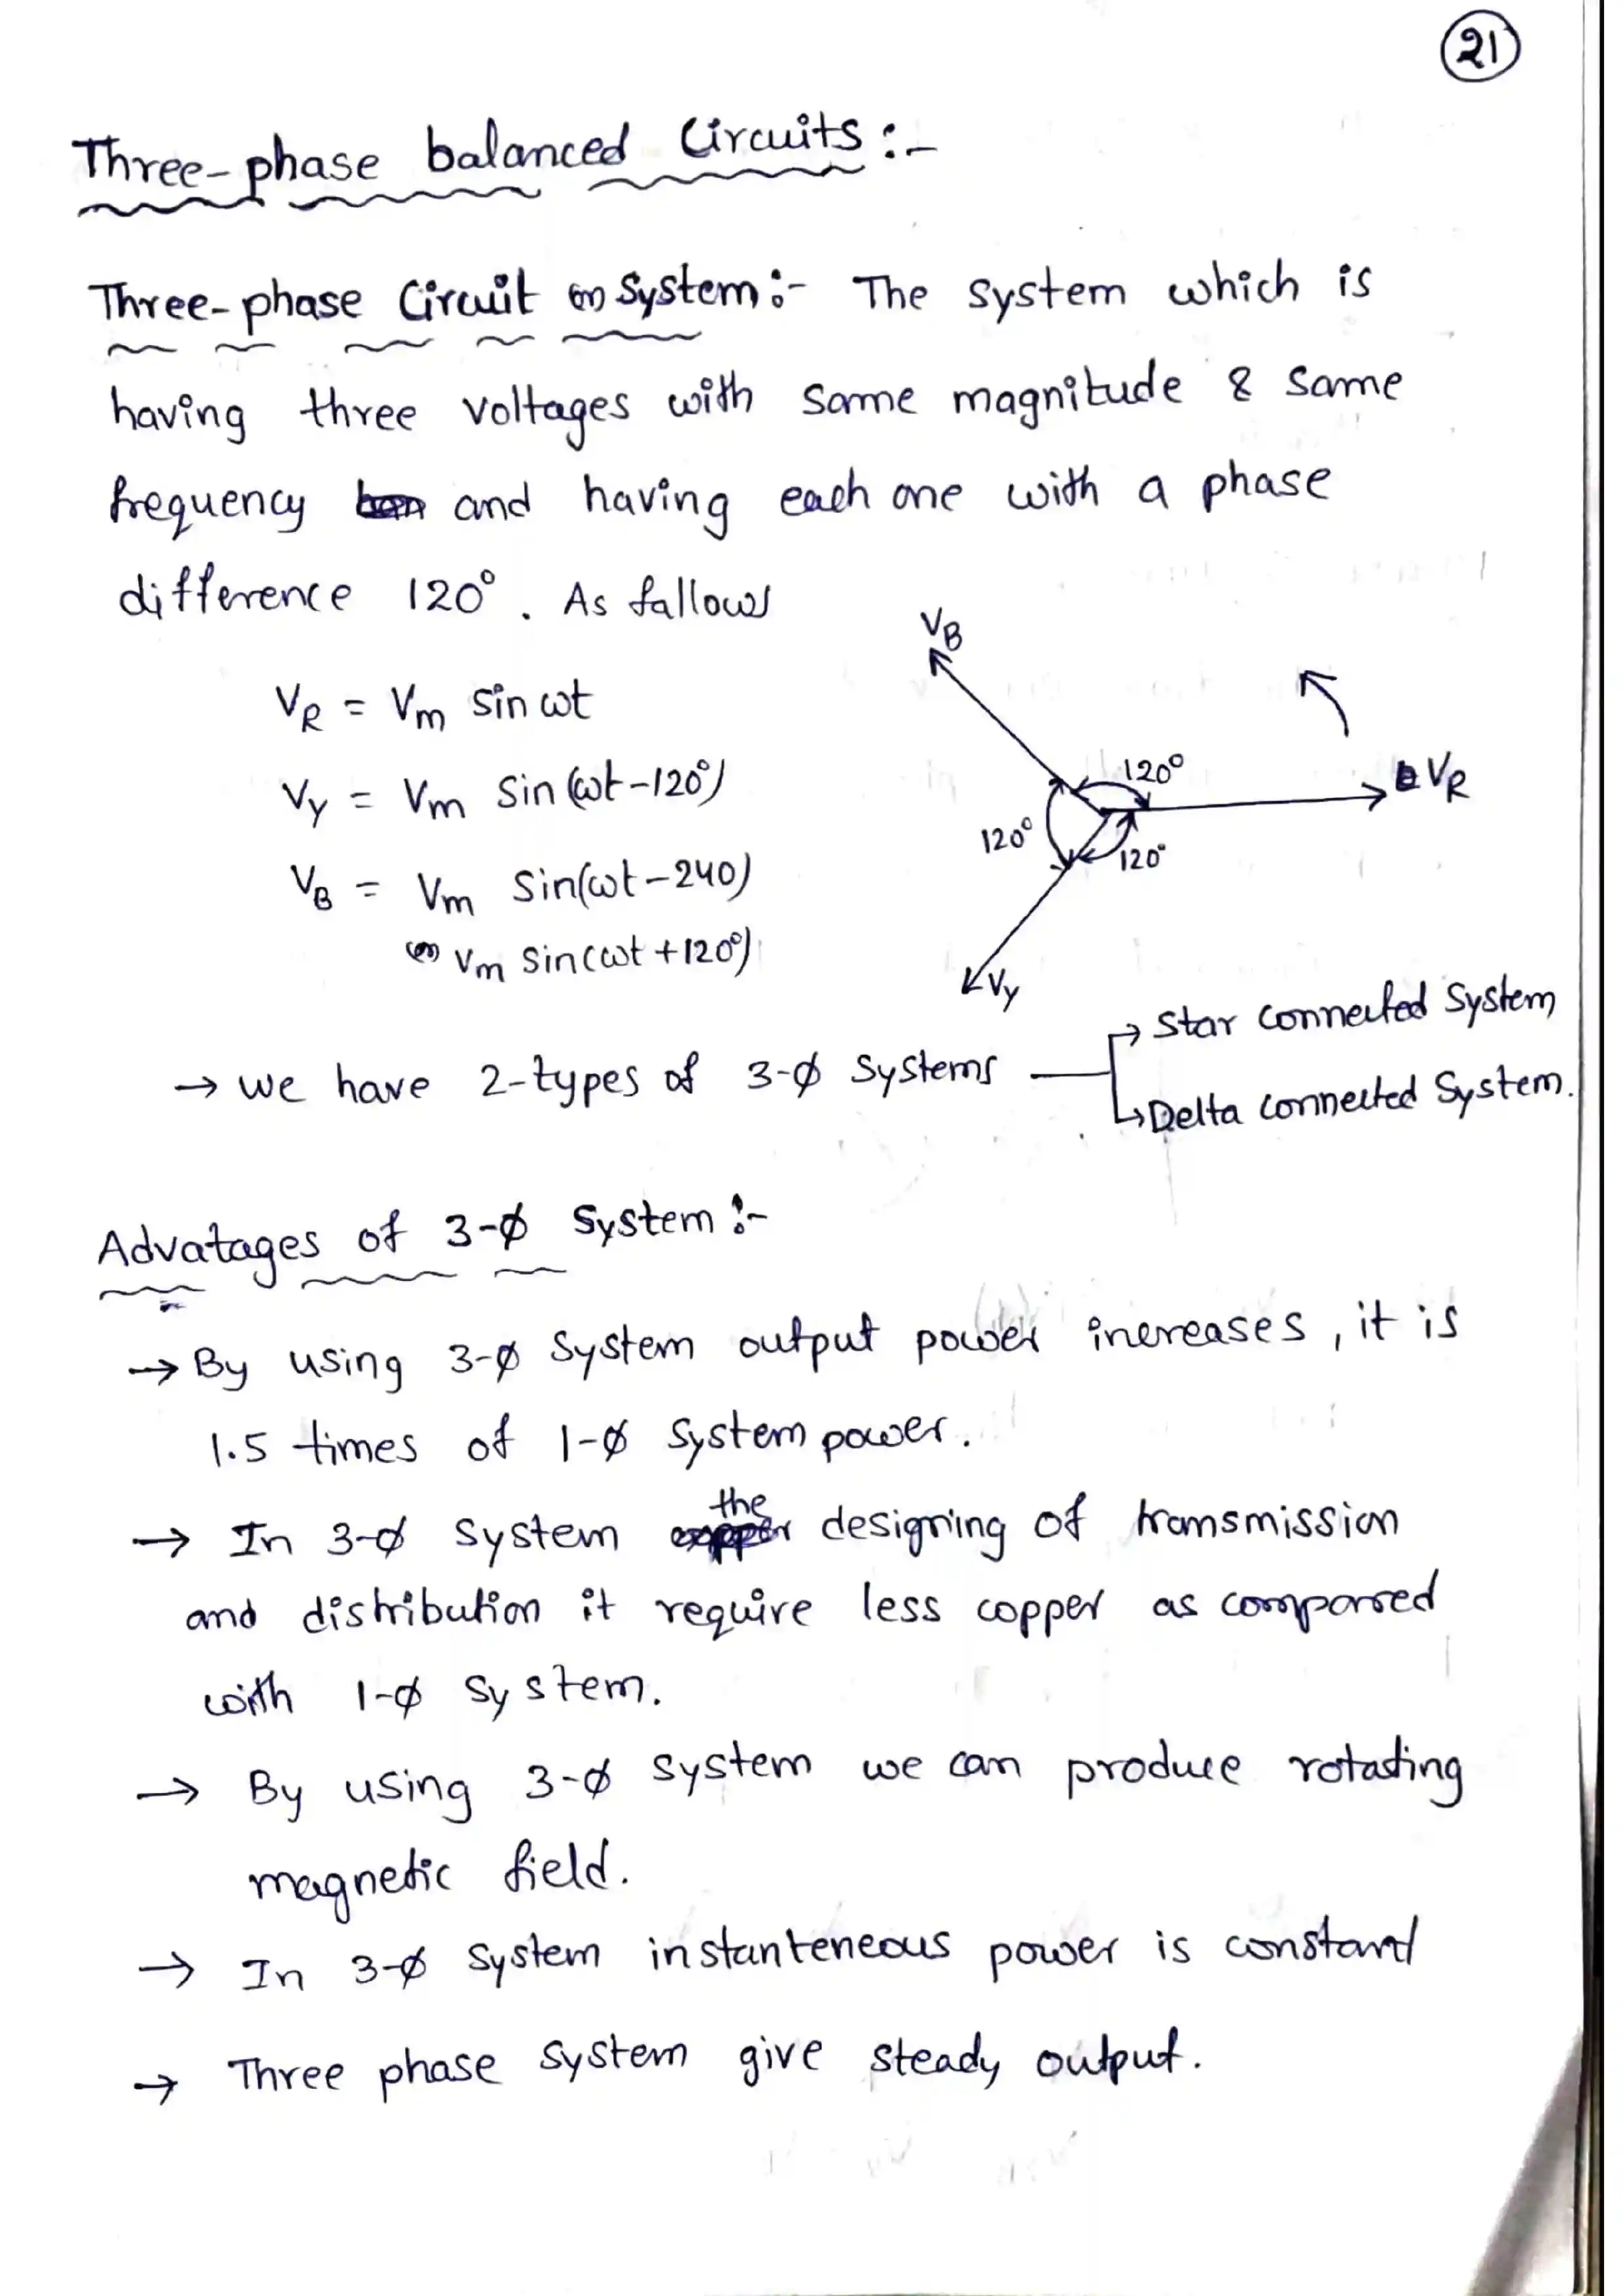 21
Three-phase balanced Circuits :-
Three-phase Circuit (or) System :- The system which is
having three voltages with same magnitude & same
frequency and having each one with a phase
difference 120°. As fallows
V_R = V_m Sin ωt
V_Y = V_m Sin (ωt-120°)
V_B = V_m Sin(ωt-240)
(or) V_m Sin(ωt+120°)
V_B
V_R
V_Y
120°
120°
120°
→ We have 2-types of 3-ϕ Systems
→ Star connected System
↳ Delta connected System.
Advatages of 3-ϕ System :-
→ By using 3-ϕ System output power increases, it is
1.5 times of 1-ϕ System power.
→ In 3-ϕ System the designing of transmission
and distribution it require less copper as compared
with 1-ϕ System.
→ By using 3-ϕ System we can produce rotating
magnetic field.
→ In 3-ϕ System instanteneous power is constant
→ Three phase System give steady output.